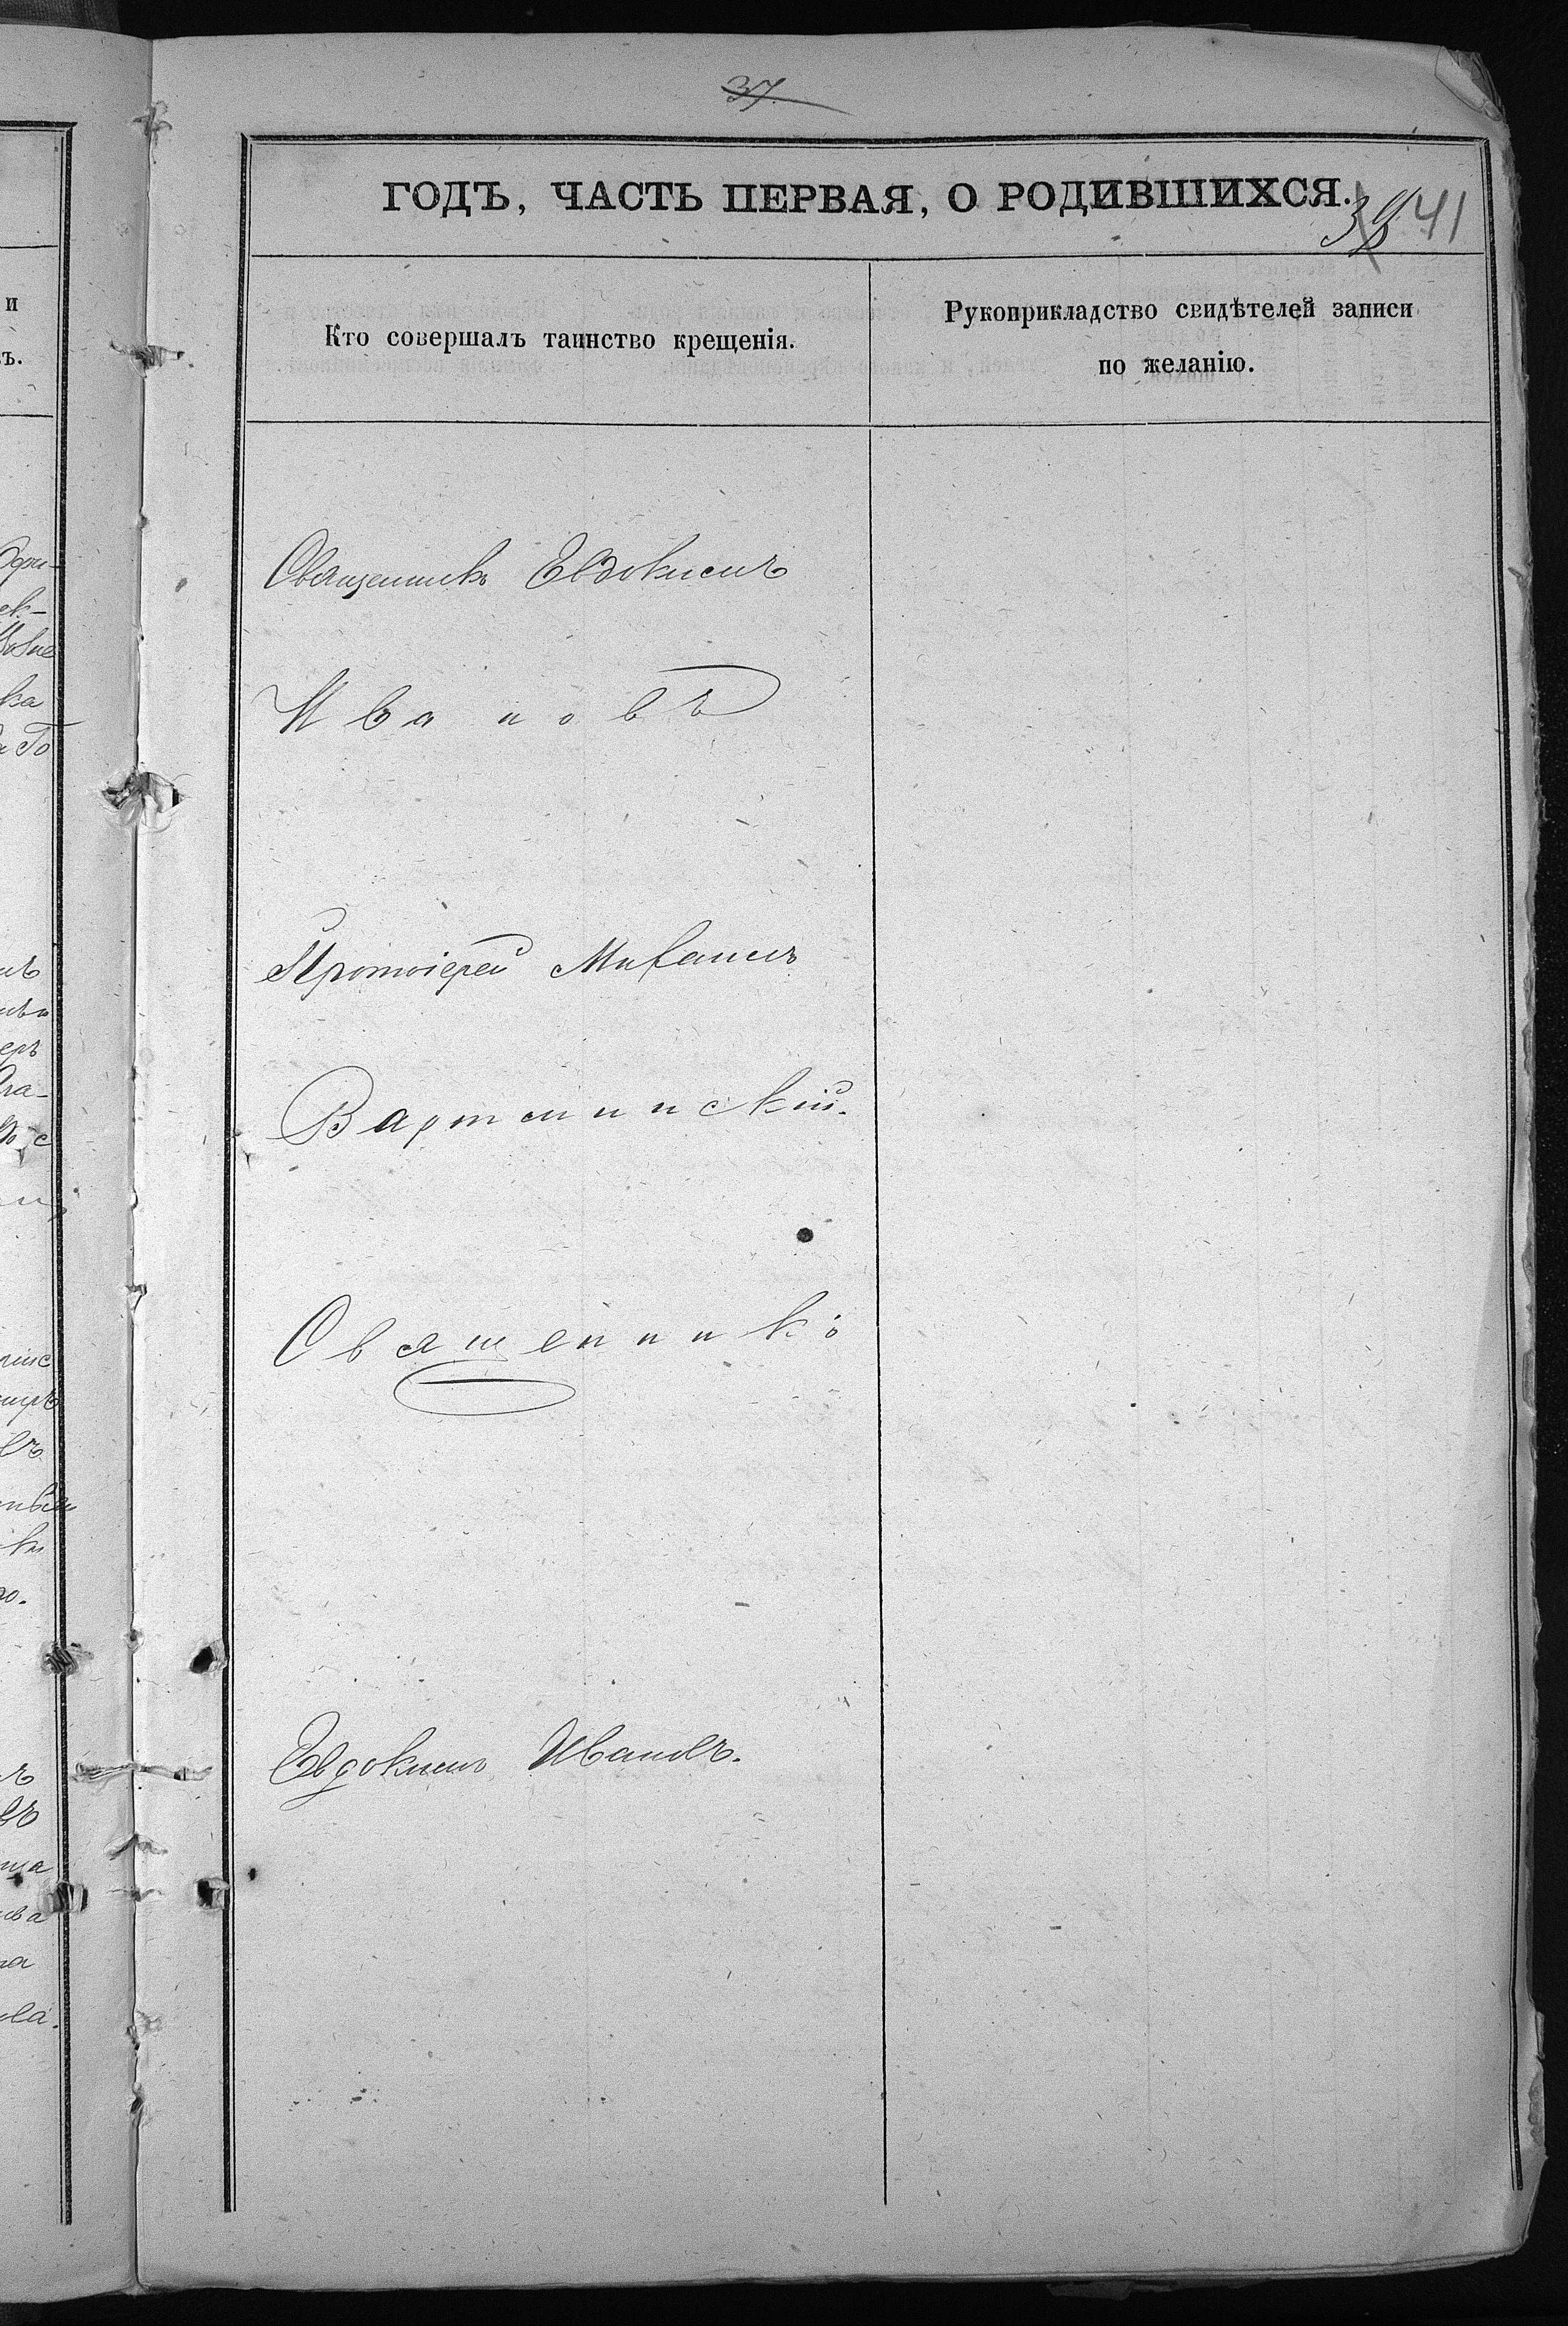 37.
ГОДЪ, ЧАСТЬ ПЕРВАЯ, О РОДИВШИХСЯ.
39 41
Кто совершалъ таинство крещенія.
Рукоприкладство свидѣтелей записи
по желанію.
Священникъ Евдокимъ
Ивановъ
Протоіерей Михаилъ
Вартминскій.
Священникъ
Евдокимъ Ивановъ.